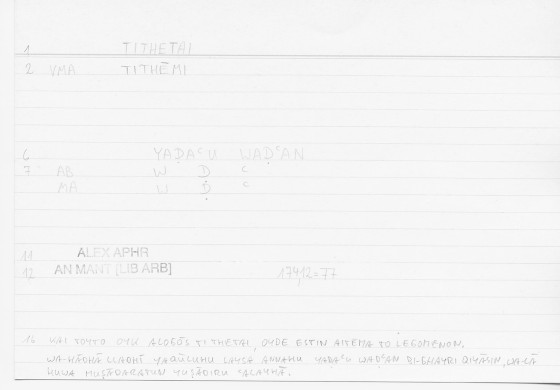 1 TITHETAI
2 VMA TITHĒMI
6 YAḌAʿU WAḌʿAN
7 AB W Ḍ ʿ
MA W Ḍ ʿ
11 ALEX APHR
12 AN MANT [LIB ARB] 174,12=77
16 KAI TOYTO OYK ALOGŌS TITHETAI, OYDE ESTIN AITĒMA TO LEGOMENON.
WA-HĀḎĀ LLAḎĪ YAQŪLUHU LAYSA ANNAHU YAḌAʿU WAḌʿAN BI-GHAYRI QIYĀSIN, WA-LĀ
HUWA MUṢĀDARATUN YUṢĀDIRU ʿALAYHĀ.